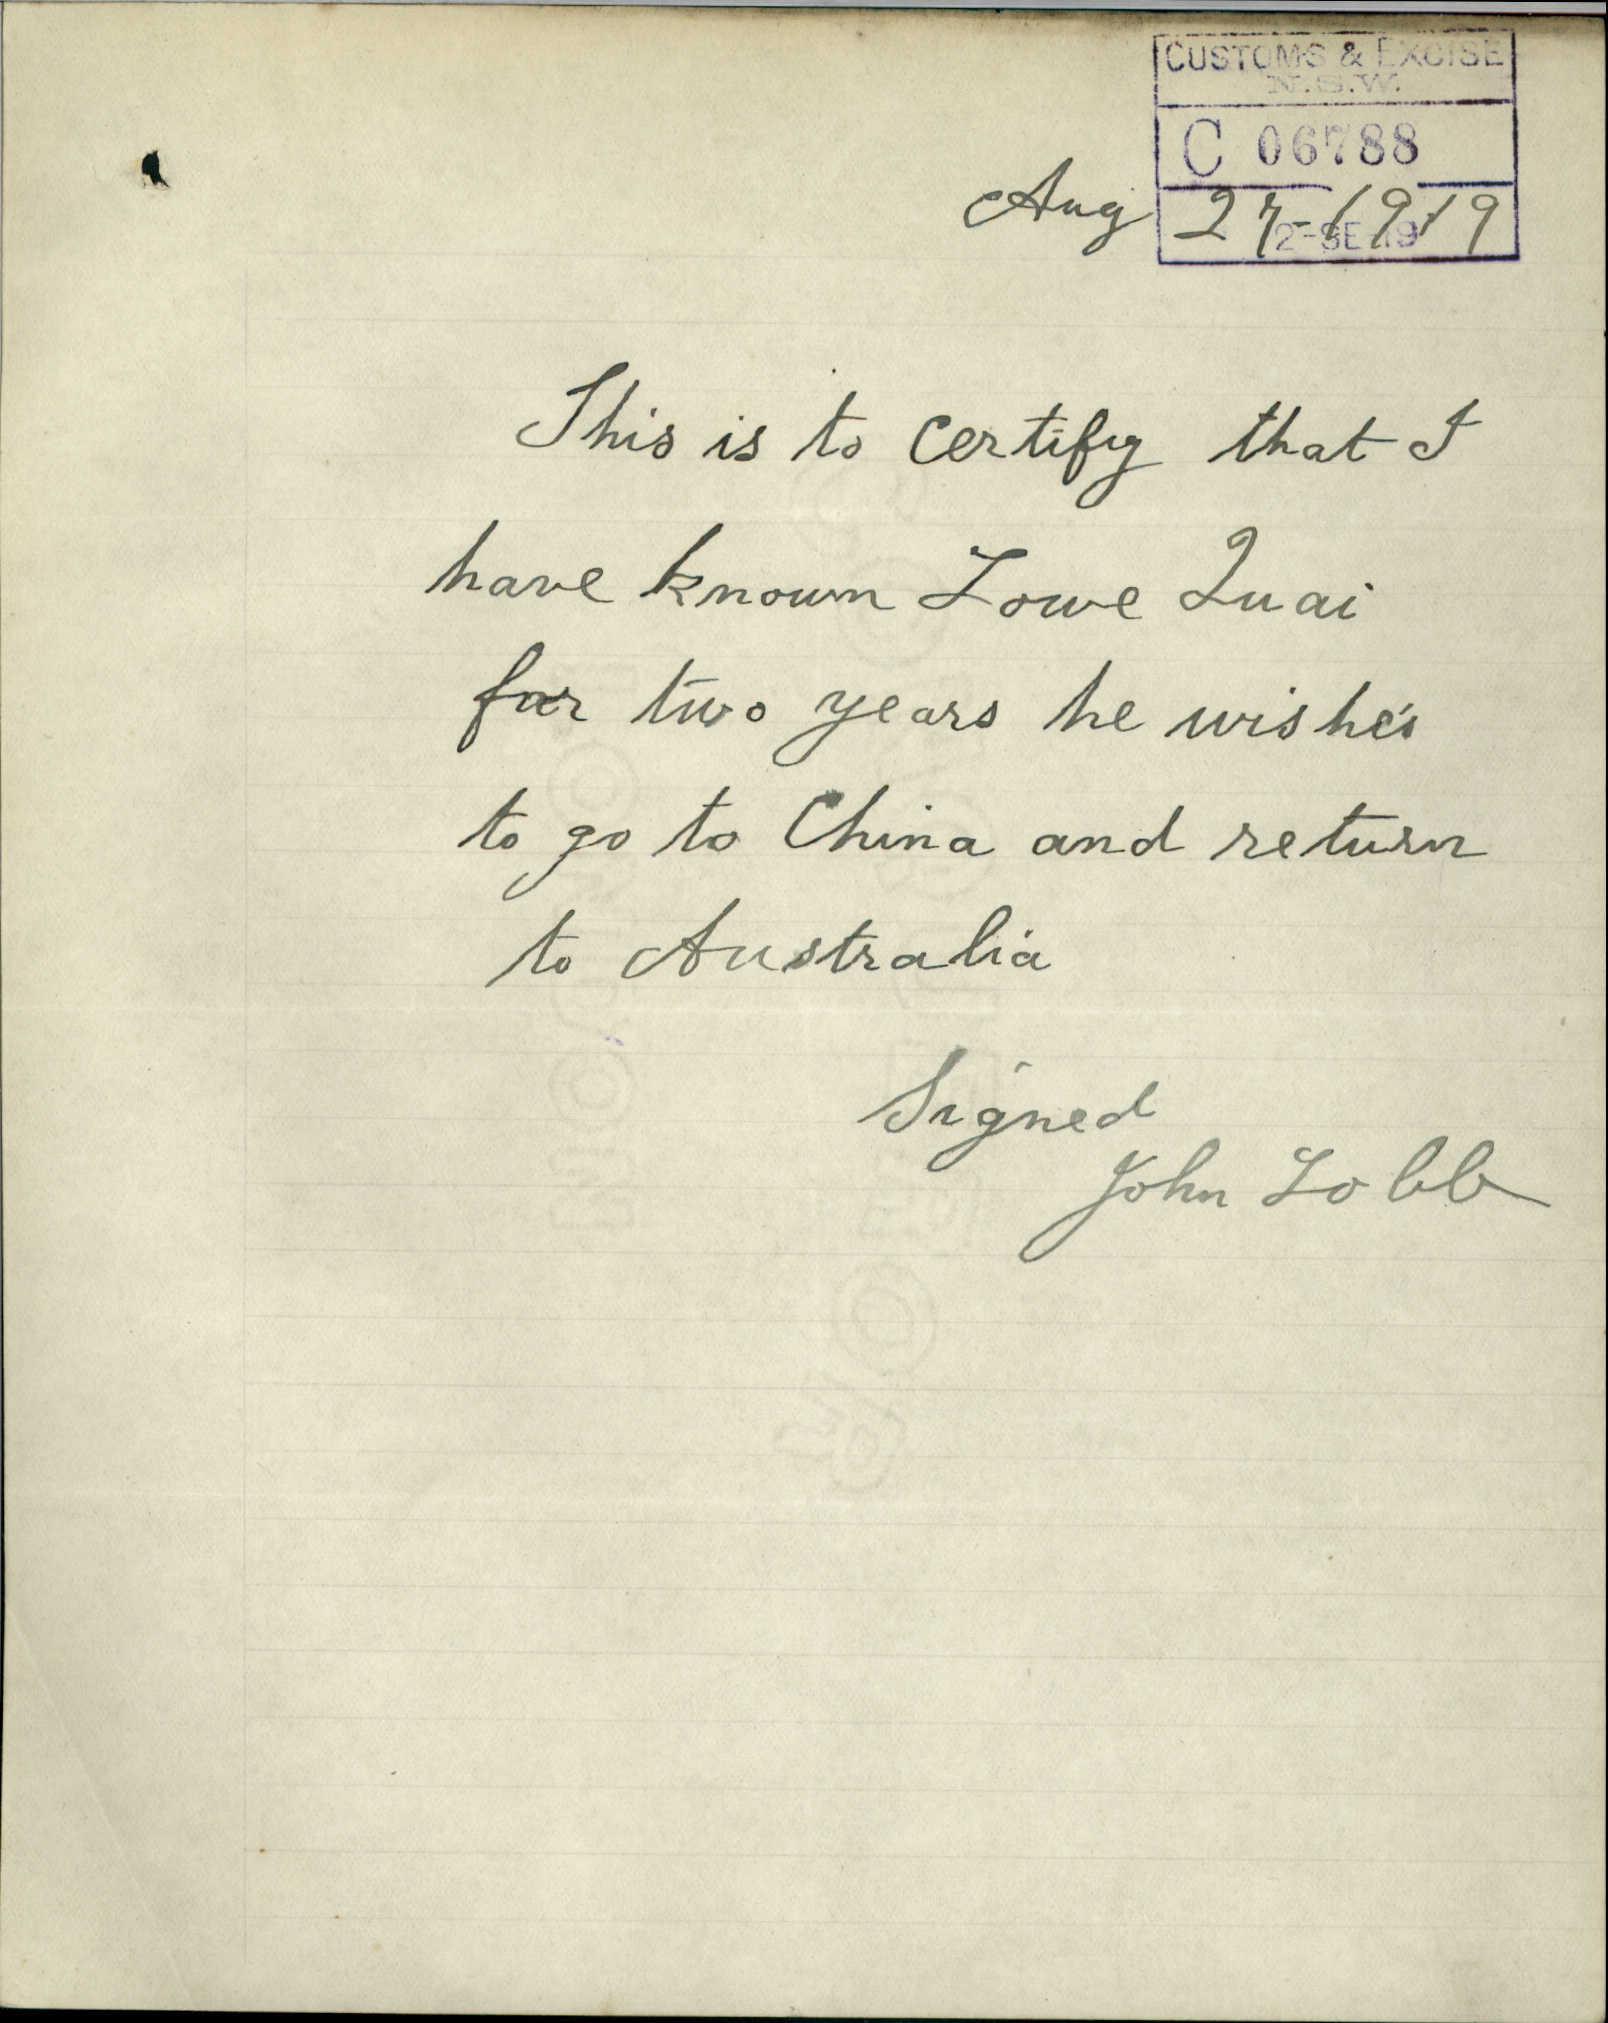 CUSTOMS & EXCISE
N.S.W.
C 06788
2-SE-19
Aug 27-1919
This is to certify that I
have known Lowe Quai
for two years he wishes
to go to China and return
to Australia
Signed
John Lobb